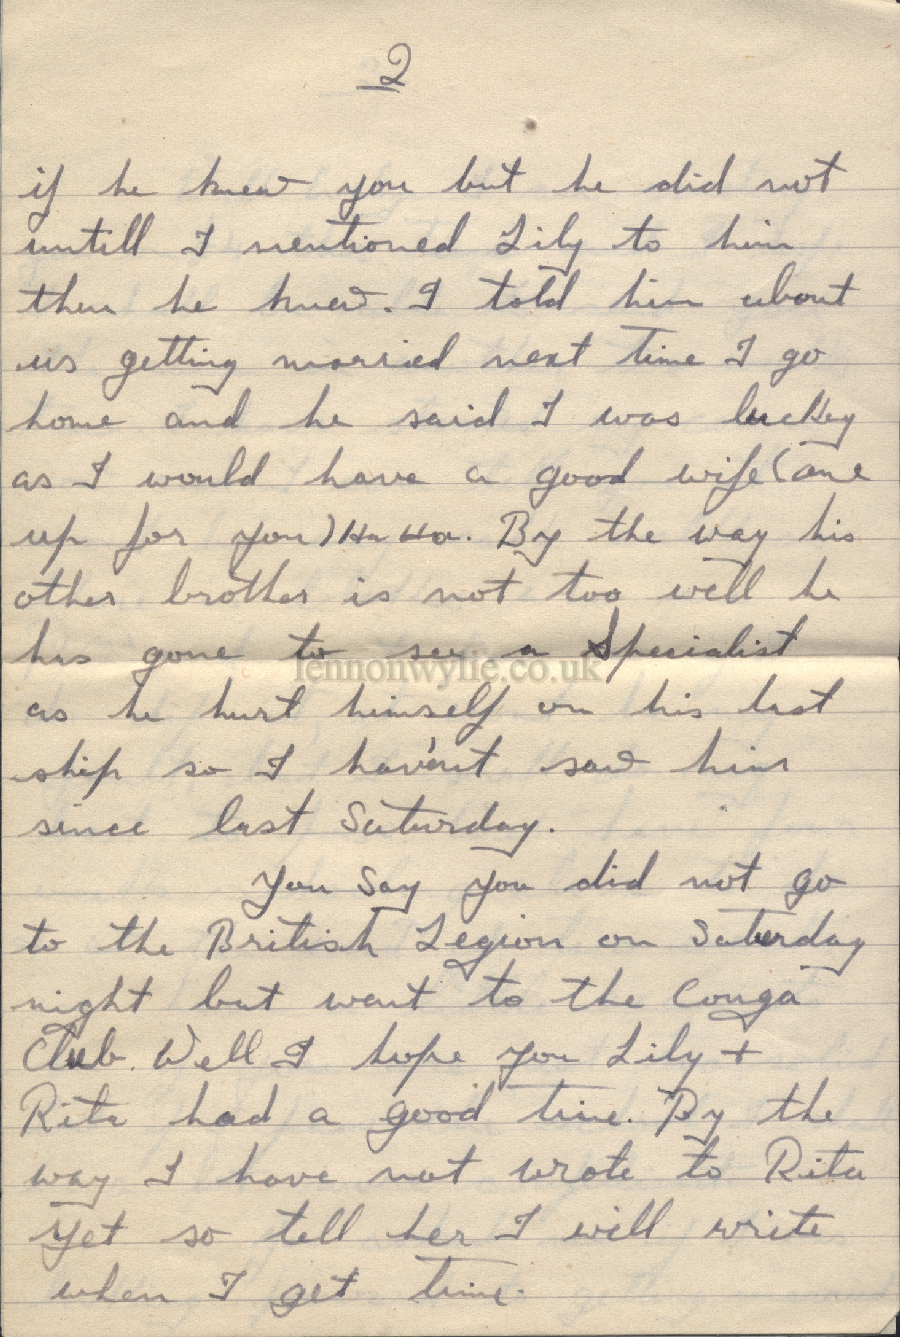 2
if he knew you but he did not
untill I mentioned Lily to him
then he knew. I told him about
us getting married next time I go
home and he said I was luckey
as I would have a good wife (one
up for you) Ha Ha. By the way his
other brother is not too well he
has gone to see a Specialist
lennonwylie.co.uk
as he hurt himself on his last
ship so I hav'ent saw him
since last Saturday.
You Say you did not go
to the British Legion on Saturday
night but went to the Conga
Club. Well I hope you Lily +
Rita had a good time. By the
way I have not wrote to Rita
yet so tell her I will write
when I get time.